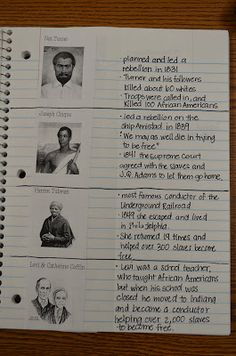 Nat Turner
· planned and led a
rebellion in 1831
· Turner and his followers
killed about 60 whites
· Troops were called in, and
killed 100 African Americans
Joseph Cinque
· led a rebellion on the
ship Amistad in 1839
· "We may as well die in trying
to be free."
· 1841 the supreme court
agreed with the slaves and
J.Q. Adams to let them go home.
Harriet Tubman
· most famous conductor of the
Underground Railroad
· 1849 she escaped and lived
in Philadelphia
· She returned 19 times and
helped over 300 slaves become
free.
Levi & Catherine Coffin
· Levi was a school teacher,
who taught African Americans
but when his school was
closed he moved to Indiana
and became a conductor
helping over 2,000 slaves
to become free.